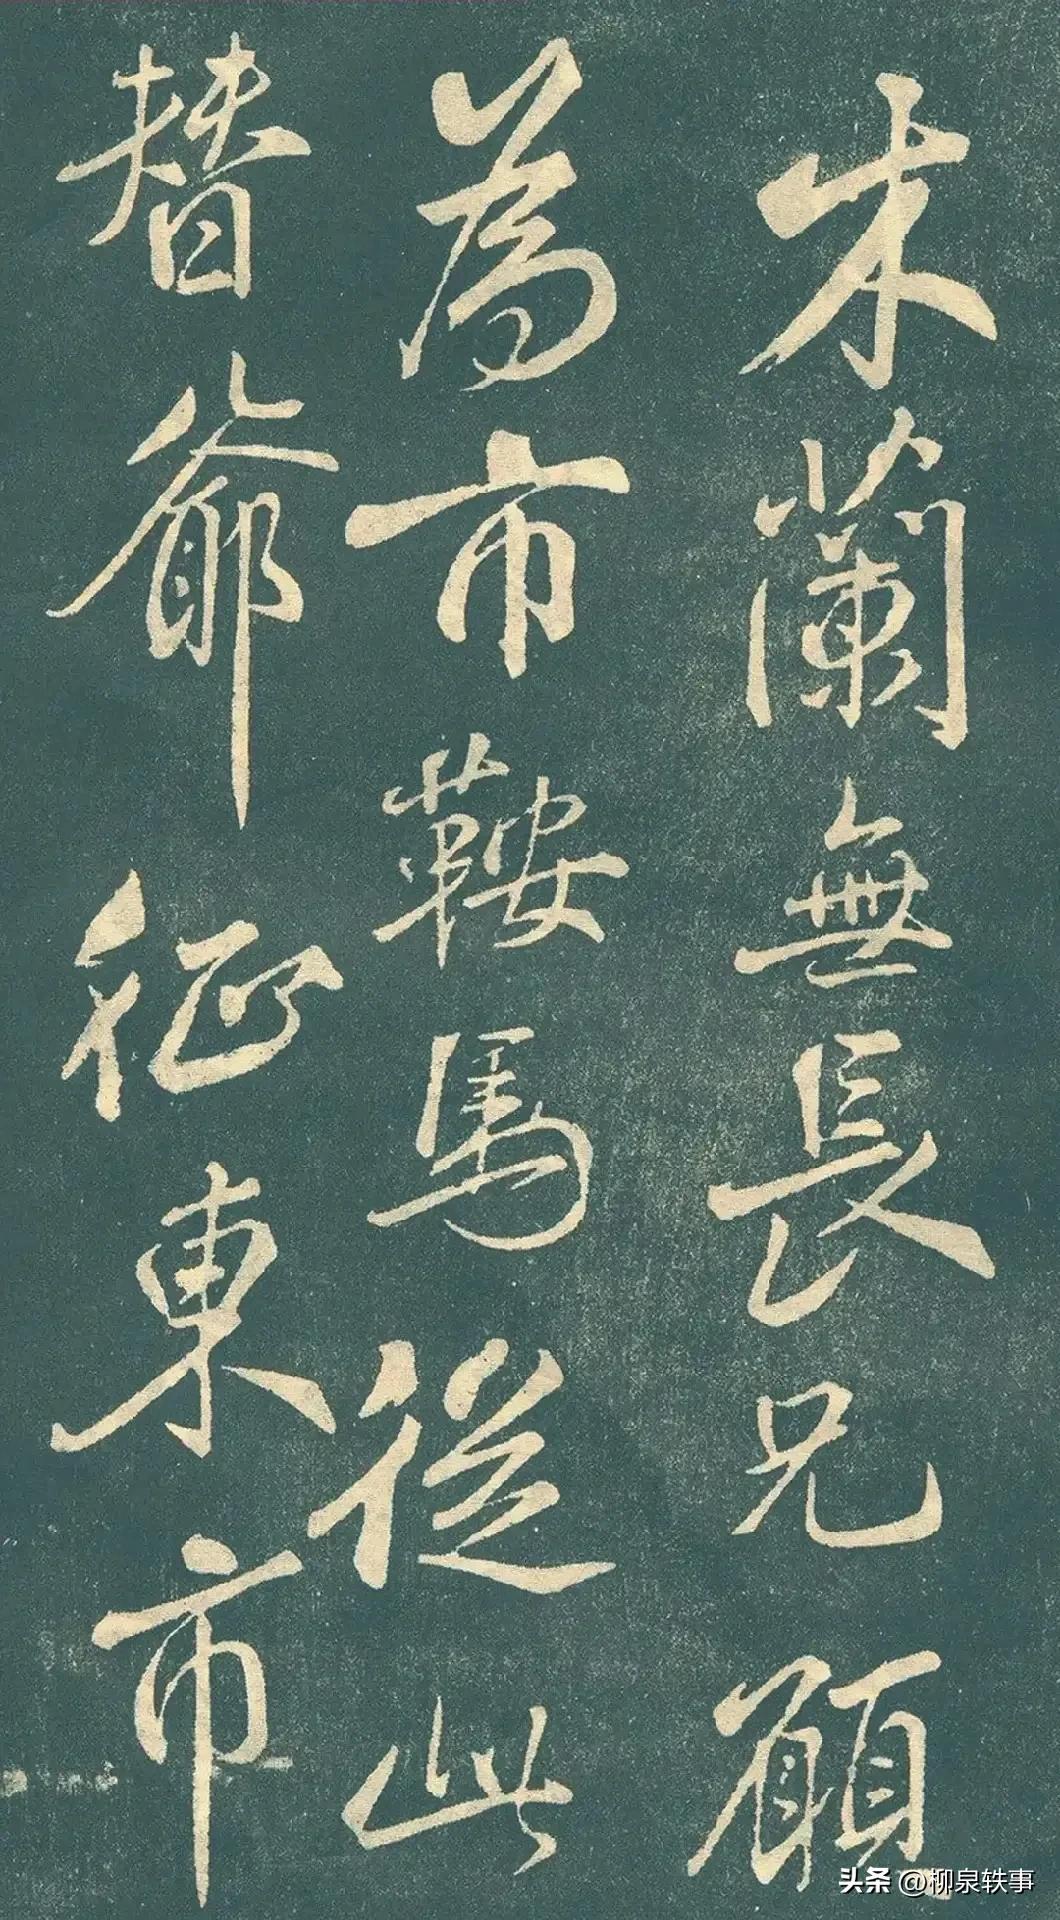 木蘭無長兄願
為市鞍馬從此
替爺征東市
头条 @柳泉轶事